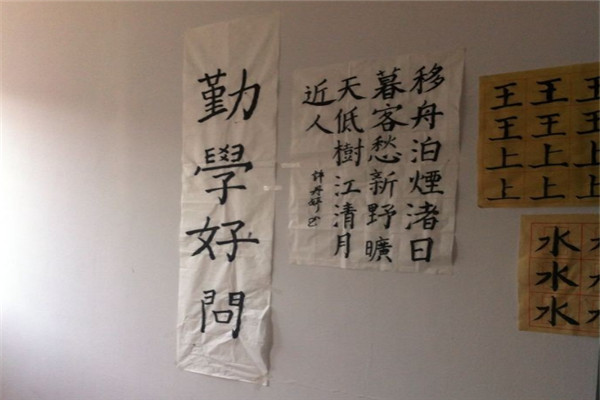 勤學好問
移舟泊煙渚日
暮客愁新野曠
天低樹江清月
近人
王王王
王王王
上上上
上上上
水水
水水
水水